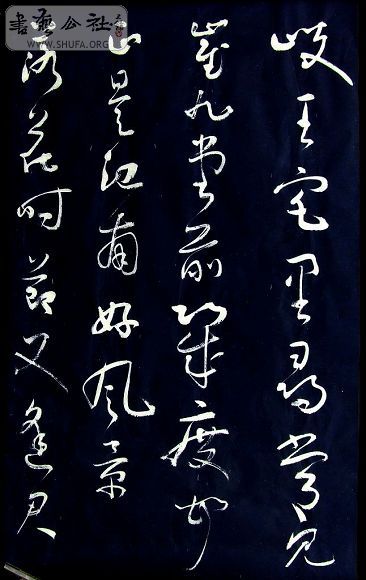 岐王宅里尋常見
崔九堂前幾度聞
正是江南好風景
落花時節又逢君
公社
WWW.SHUFA.ORG